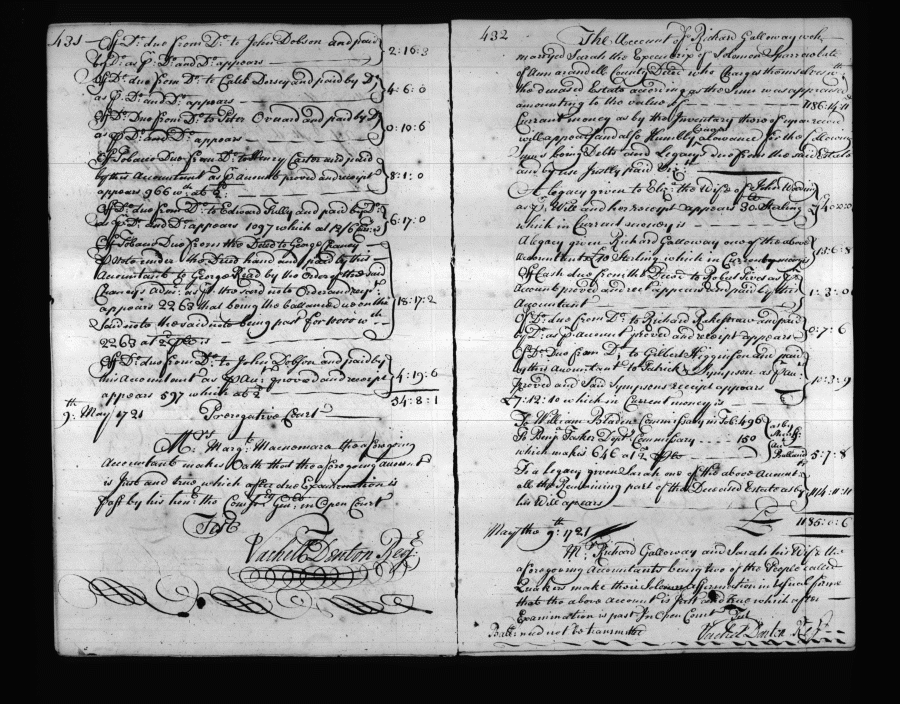 431
Of Do. due from Do. to John Dobson and paid
by Do. as p Do. and Do. appears 2:16:3
Of Do. due from Do. to Caleb Dorsey and paid by Do
as p. Do. and Do. appears 4:6:0
Of Do. Due from Do. to Peter and paid by Do
as p Do. and Do. appears 0:10:6
Of Tobacco Due from Do. to Henry Carter and paid
by this Accountant as p Account proved and receipt
appears 966 wth. at 8:1:0
Of Do. due from Do. to Edward Tully and paid by Do.
as p Do. and Do. appears 1097 which at 12/6 6:17:0
Of Tobacco Due from the Deced to George Chancy
p Note under the Deced hand and paid by this
Accountant to George Read by the Order of the said
Chancys Admr. as p the said note Order and rect.
appears 2263 that being the ballance due on the
said note the said note being past for 1000 wth
2263 at 2d is 18:17:2
Of Do. due from Do. to John Dobson and paid by
this Accountant as p Acct. proved and receipt
appears 597 which at 2d 4:19:6
54:8:1
9th. May 1721 Prerogative Court
Mrs. Margt. Macnemara the aforegoing
Accountant makes Oath that the aforegoing Account
is Just and true which after due Examination is
past by his honr. the Comsry Genl. in Open Court
Test
Vachell Denton Regr.
432
The Account of Richard Galloway who
marryed Sarah the Executrix of Solomon Sparrow late
of Annarundell County Deced who Charges themselves wth
the deceased Estate according as the same was appraised
amounting to the value of 1186:14:11
Currant money as by the Inventory thereof upon record
will appear and also Humbly Craves allowance for the following
Sums being Debts and Legacys due from the said Estate
and by these Justly paid Viz:
A Legacy given to Eliz: the Wife of John
as p Will and her receipt appears 30 lb Sterling
which in Current money is
A legacy given Richard Galloway one of the above
Accountants £10 Sterling which in Current money is 13:6:8
Of Cash due from the Deced. to Robert as p
Account proved and rect appears and paid by this
Accountant
Of Do. due from Do. to Richard and paid
by Do. as p Account proved and receipt appears 0:7:6
Of Do. Due from Do. to Gilbert Higginson and paid
by this Accountant to Patrick Sympson as p Acct
proved and said Sympsons receipt appears
£7:12:10 which in Current money is 10:3:9
To William Bladen Commissary in Tob: 496
To Benja. Tasker Dept. Commissary 150
which makes 646 at 2d 5:7:8
To a legacy given Sarah one of the above Accountts
all the Remaining part of the Deceased Estate as by
his Will apears 1114:11:11
£ 1185:0:6
May the 9th: 1721
Mr. Richard Galloway and Sarah his Wife the
aforegoing Accountants being two of the People called
Quakers make their Solemn affirmation in usual forme
that the above Account is Just and true which after
Examination is past In Open Court Test
Balla: need not be transmitted Vachell Denton Regr.